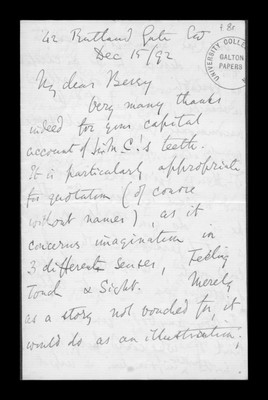 42 Rutland Gate SW
Dec 15/92
My dear Berry
Very many thanks
indeed for your capital
account of Sir M. C.'s teeth.
It is particularly appropriate
for quotation (of course
without names), as it
concerns imagination in
3 different senses, Feeling
Touch & Sight. Merely
as a story not vouched for, it
would do as an illustration,
UNIVERSITY COLLEGE
GALTON
PAPERS